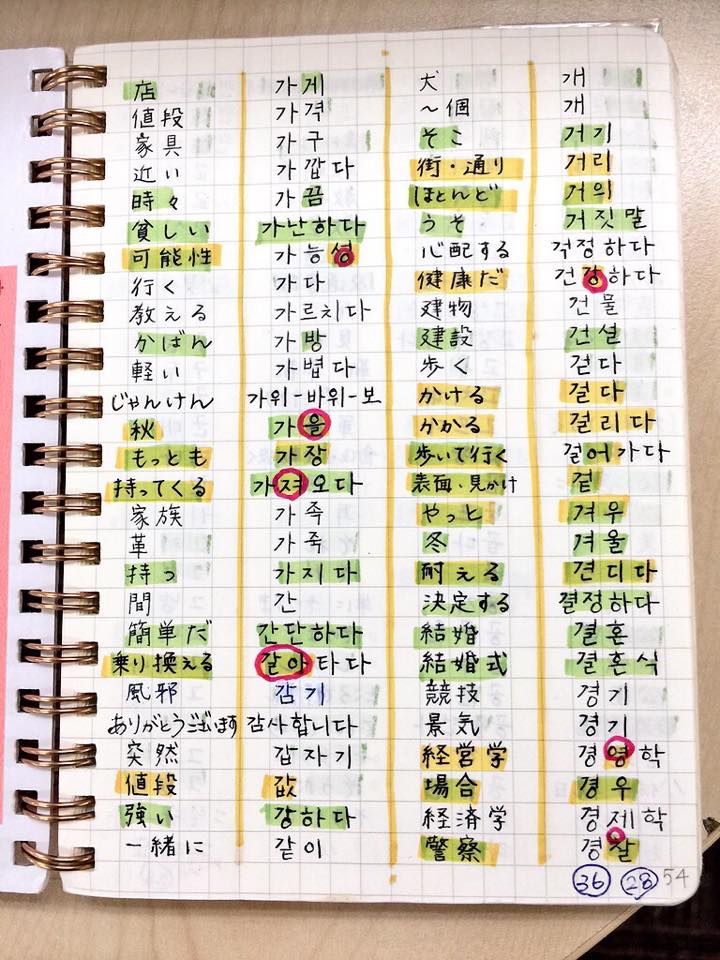 店 가게 犬 개
値段 가격 ~個 개
家具 가구 そこ 거기
近い 가깝다 街・通り 거리
時々 가끔 ほとんど 거의
貧しい 가난하다 うそ 거짓말
可能性 가능성 心配する 걱정하다
行く 가다 健康だ 건강하다
教える 가르치다 建物 건물
かばん 가방 建設 건설
軽い 가볍다 歩く 걷다
じゃんけん 가위-바위-보 かける 걸다
秋 가을 かかる 걸리다
もっとも 가장 歩いて行く 걸어가다
持ってくる 가져오다 表面・見かけ 겉
家族 가족 やっと 겨우
革 가죽 冬 겨울
持つ 가지다 耐える 견디다
間 간 決定する 결정하다
簡単だ 간단하다 結婚 결혼
乗り換える 갈아타다 結婚式 결혼식
風邪 감기 競技 경기
ありがとうございます 감사합니다 景気 경기
突然 갑자기 経営学 경영학
値段 값 場合 경우
強い 강하다 経済学 경제학
一緒に 같이 警察 경찰
36 28 54